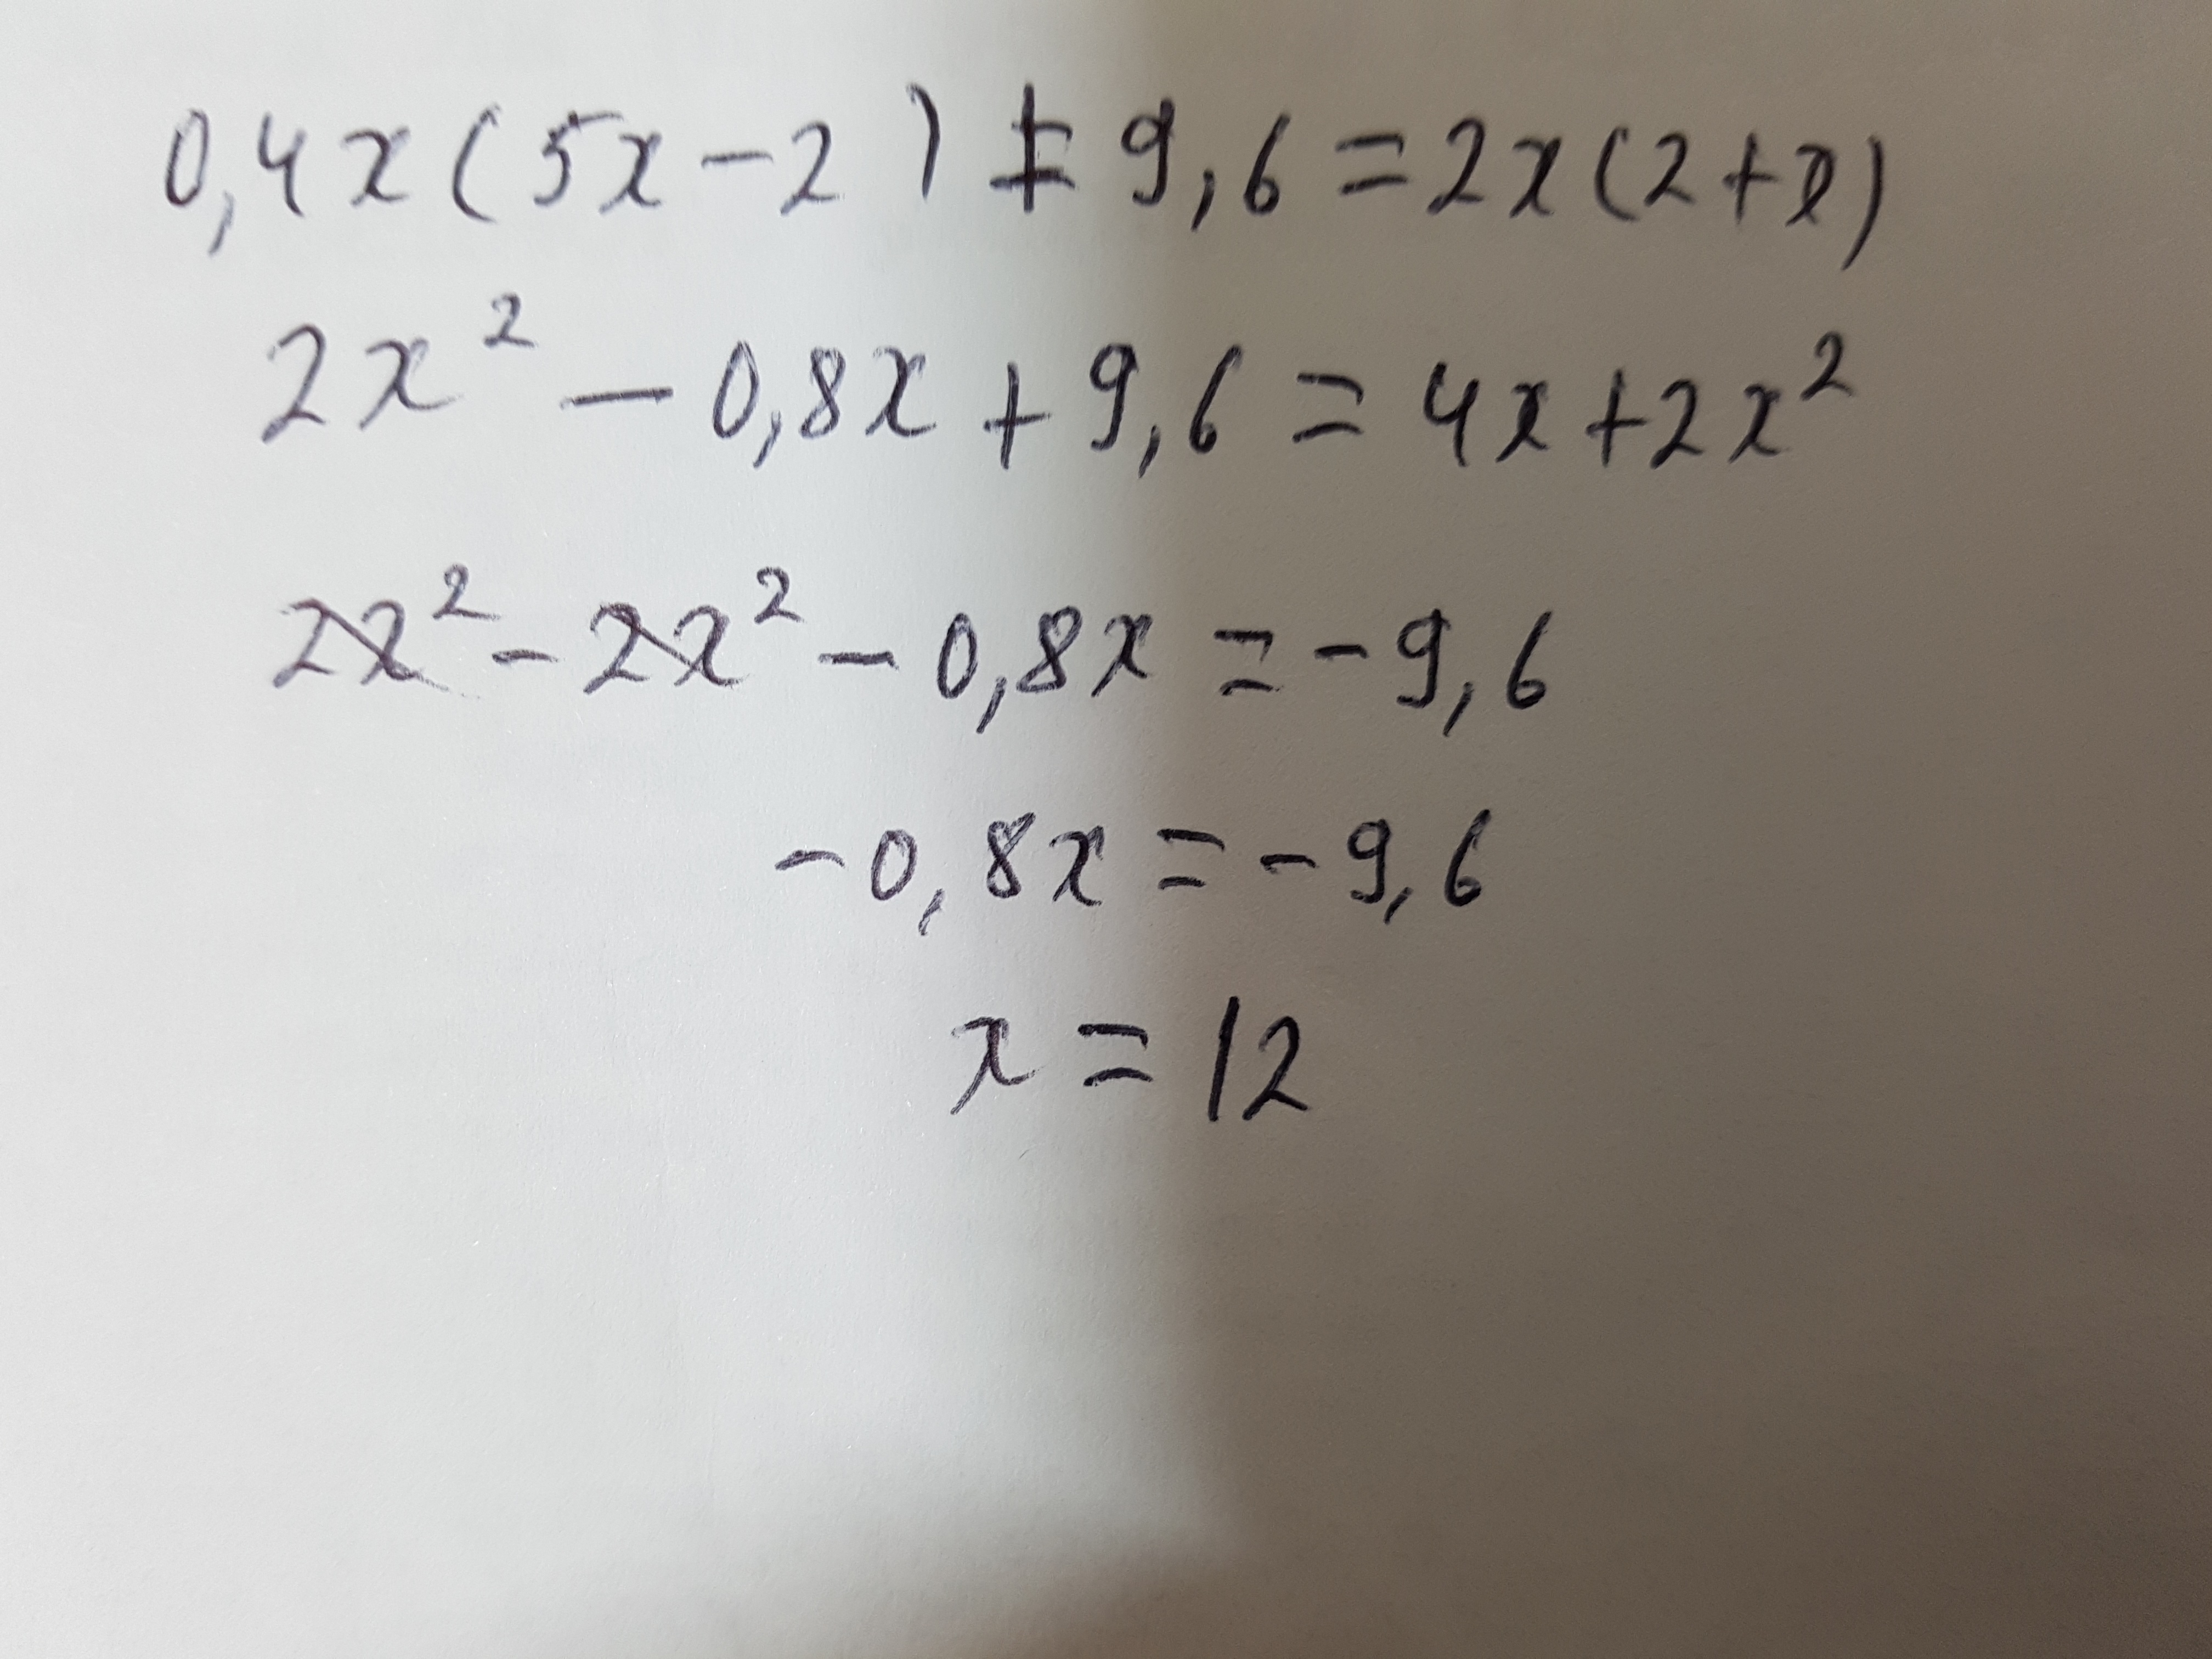 0,4x(5x-2)+9,6=2x(2+x)
2x²-0,8x+9,6=4x+2x²
2x²-2x²-0,8x=-9,6
-0,8x=-9,6
x=12